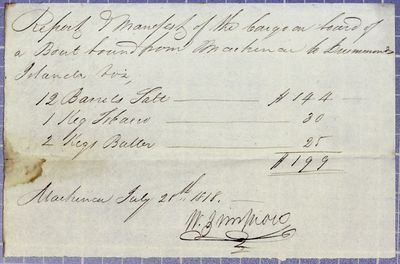 Report & Manifest of the Cargo on board of
a Boat bound from Mackinac to Drummonds
Islands viz
12 Barrels Salt $ 144
1 Keg Tobacco 30
2 Kegs Butter 25
$ 199
Mackinac July 28th 1818.
W.